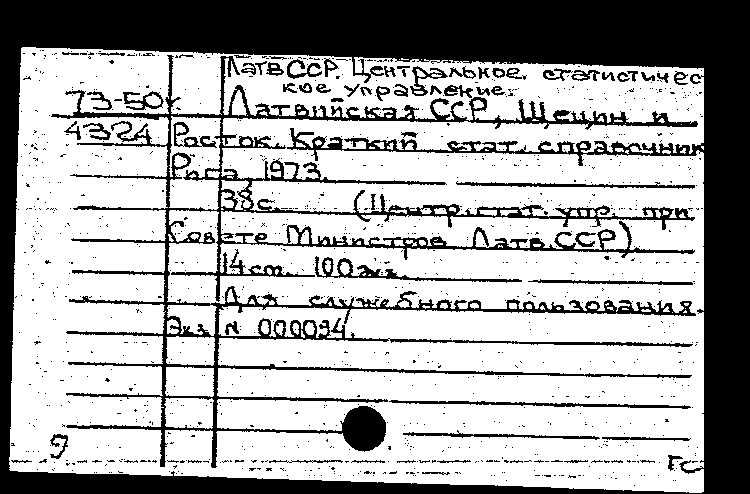 ЛатвССР. Центральное статистичес
кое управление.
73-50к Латвийская ССР, Щецин и
4324 Росток. Краткий стат. справочник
Рига, 1973.
38с. (Центр.стат.упр. при
Совете Министров Латв.ССР).
14см. 100экз.
Для служебного пользования.
Экз. N 000094.
Гс